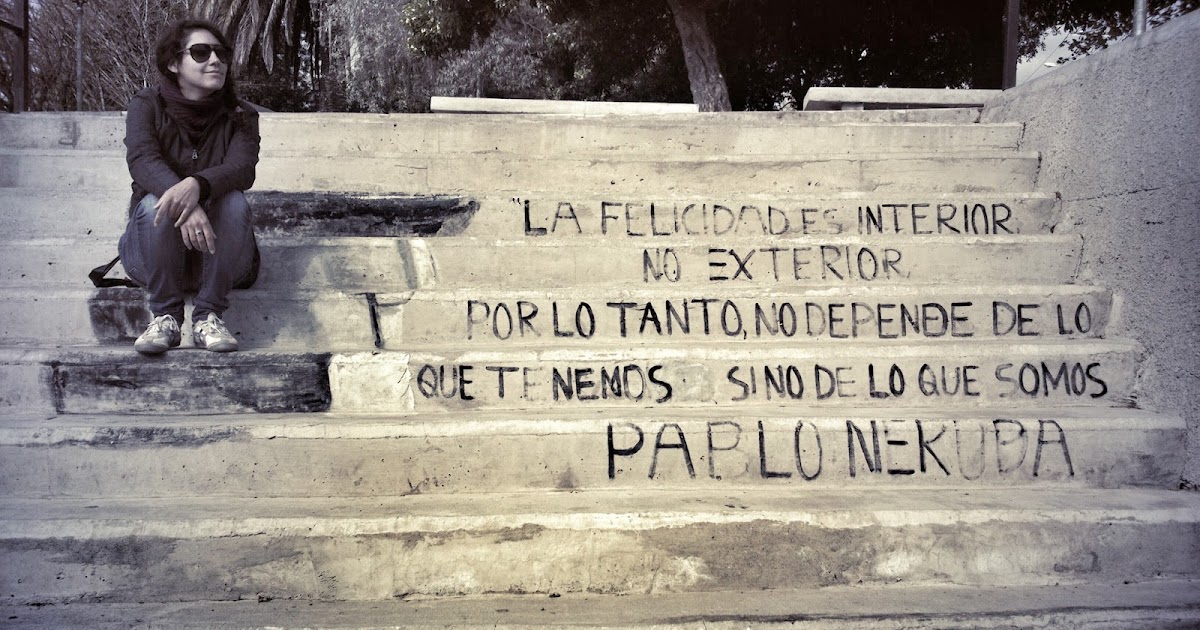 "LA FELICIDAD ES INTERIOR,
NO EXTERIOR,
POR LO TANTO, NO DEPENDE DE LO
QUE TENEMOS SINO DE LO QUE SOMOS
PABLO NERUDA